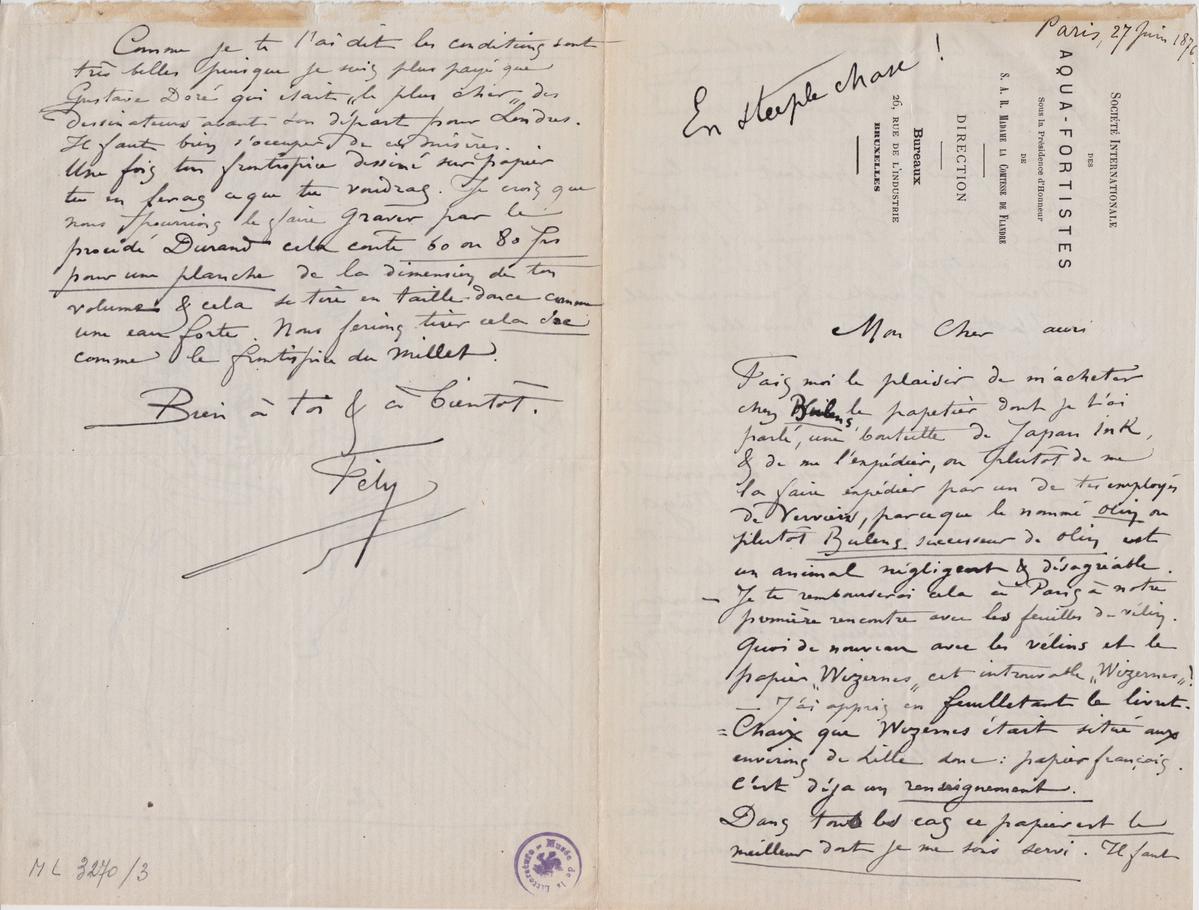 Paris, 27 Juin 187
SOCIÉTÉ INTERNATIONALE
DES
AQUA-FORTISTES
Sous la Présidence d'Honneur
DE
S. A. R. MADAME LA COMTESSE DE FLANDRE
DIRECTION
Bureaux
26, RUE DE L'INDUSTRIE
BRUXELLES
En steeple chase !
Mon Cher ami
Fais moi le plaisir de m'acheter
chez Bulens, le papetier dont je t'ai
parlé, une bouteille de Japan ink,
& de me l'expédier, ou plutôt de me
la faire expédier par un de tes employés
de Verviers, parce que le nommé Olin ou
plutôt Bulens successeur de Olin est
un animal négligent & désagréable.
– Je te rembourserai cela à Paris à notre
première rencontre avec les feuilles de vélin.
Quoi de nouveau avec les vélins et le
papier „Wizernes„ cet introuvable „Wizernes„!
– J'ai appris en feuilletant le livret-
=Chaix que Wizernes était situé aux
environs de Lille donc : papier français.
C'est déja un renseignement.
Dans tout les cas ce papier est le
meilleur dont je me sois servi. Il faut
Comme je te l'ai dit les conditions sont
très belles puisque je suis plus payé que
Gustave Doré qui était „le plus cher„ des
dessinateurs avant son départ pour Londres.
Il faut bien s'occuper de ces misères.
Une fois ton frontispice dessiné sur papier
tu en feras ce que tu voudras. Je crois que
nous pourrions le faire graver par le
procédé Durand cela coute 60 ou 80 frs
pour une planche de la dimension de ton
volume & cela se tire en taille-douce comme
une eau forte. Nous ferions tirer cela
comme le frontispice du Millet.
Bien à toi & à bientôt.
Fély
ML 3270/3
Musée de la Littérature